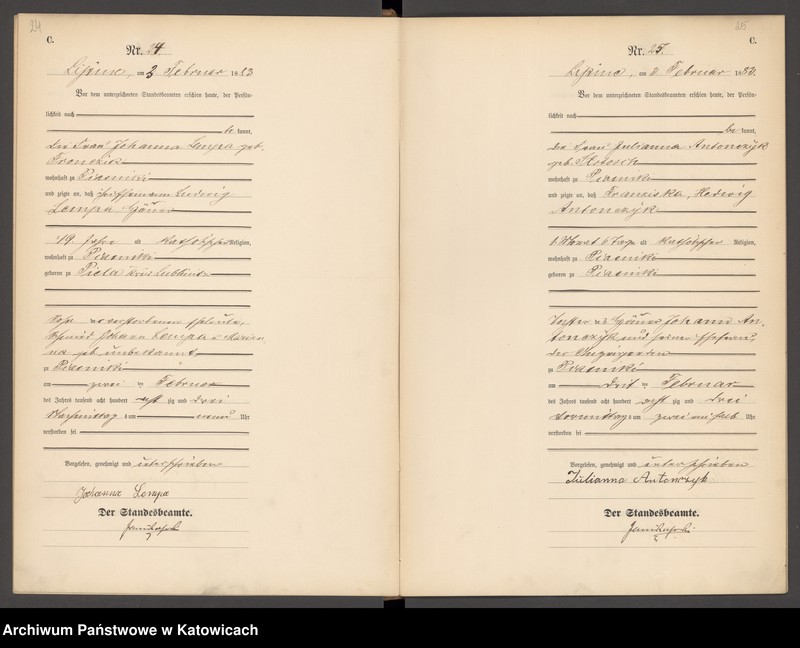 24
C.
Nr. 24.
Lipine, am 3 Februar 1883
Vor dem unterzeichneten Standesbeamten erschien heute, der Persön-
lichkeit nach
be kannt,
die Frau Johanna Lempa geb.
wohnhaft zu Piasniki
und zeigte an, daß Ludwig
Lempa
19 Jahre alt katholischer Religion,
wohnhaft zu Piasniki
geboren zu Kreis Lublinitz
Johann Lempa
geb. unbekannt
zu Piasniki
am zwei ten Februar
des Jahres tausend acht hundert acht zig und drei
Nachmittag s um neun Uhr
verstorben sei
Vorgelesen, genehmigt und unterschrieben
Johanna Lempa
Der Standesbeamte.
25
C.
Nr. 25.
Lipine, am 3 Februar 1883.
Vor dem unterzeichneten Standesbeamten erschien heute, der Persön-
lichkeit nach
be kannt,
die Frau Julianna Antonczyk
geb.
wohnhaft zu Piasniki
und zeigte an, daß Franziska, Hedwig
Antonczyk
6 Monat 6 Tage alt katholischer Religion,
wohnhaft zu Piasniki
geboren zu Piasniki
Tochter des Johann An-
tonczyk und seiner Ehefrau,
der Anzeigenden
zu Piasniki
am drit ten Februar
des Jahres tausend acht hundert acht zig und drei
vormittag s um zwei ein halb Uhr
verstorben sei
Vorgelesen, genehmigt und unterschrieben
Julianna Antonczyk
Der Standesbeamte.
Archiwum Państwowe w Katowicach